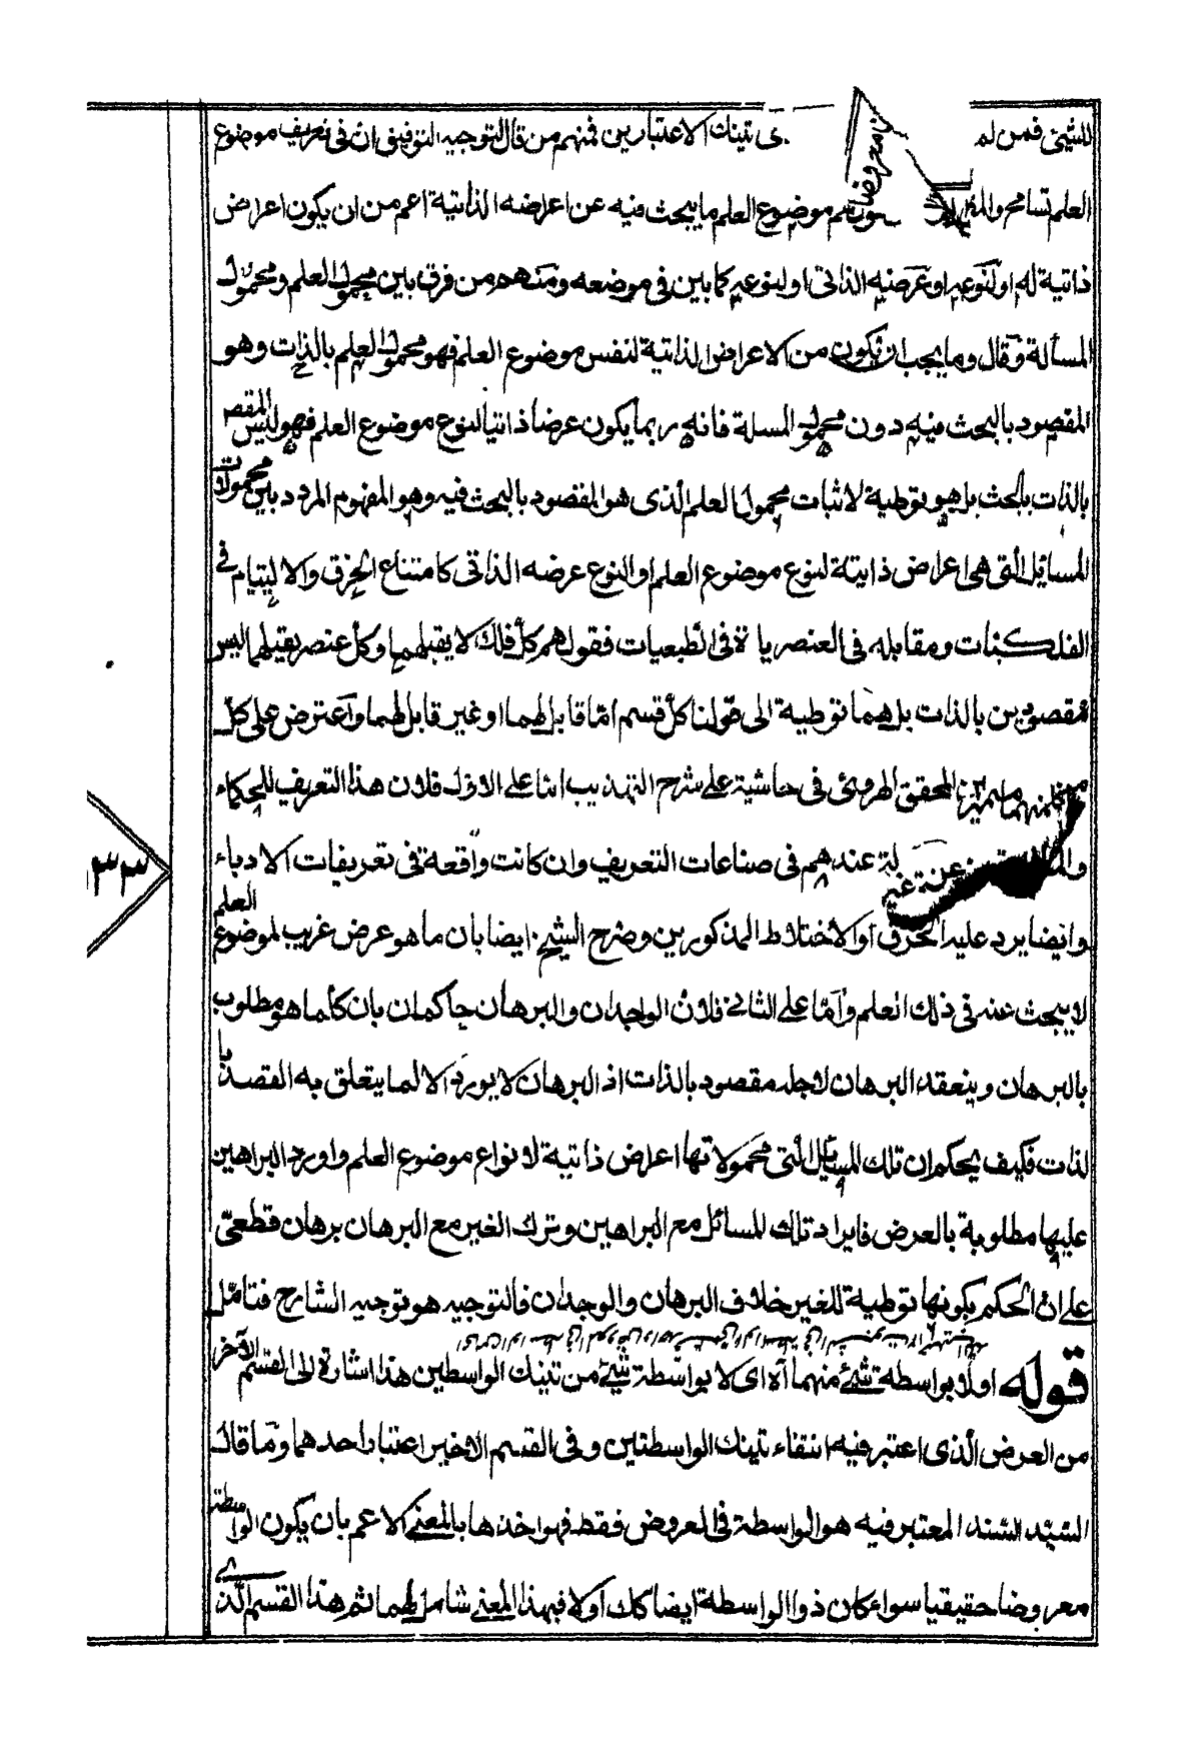 للشيئى فمن لم ى تينك الاعتبارين فمنهم من قال لتوجيه التوفيق ان فى تعريف موضوع
العلم تسامح موضوع العلم ما يبحث فيه عن اعراضه الذاتية اعم من ان يكون اعراض
ذاتية له او لنوعه او عرضيه الذاتى او لنوعه كما بين فى موضعه ومنهم من فرق بين محمول العلم ومحمول
المسألة وقال وما يجب ان يكون من الاعراض الذاتية لنفس موضوع العلم فهو محمول العلم بالذات وهو
المقصود بالبحث فيه دون محمول المسلة فانه ربما يكون عرضا ذاتيا لنوع موضوع العلم فهو ليس المقص
بالذات بالبحث بل هو توطية لاثبات محمول العلم الذى هو المقصود بالبحث فيه وهو المفهوم المردد بين محمولات
المسائل التى هى اعراض ذاتية لنوع موضوع العلم او لنوع عرضه الذاتى كامتناع الخرق والالتيام فى
الفلكيات ومقابله فى العنصرياة فى الطبعيات فقولهم كل فلك لا يقبلهما وكل عنصر يقبلهما ليس
مقصودين بالذات بل هما توطية الى قولنا كل قسم اما قابل لهما او غير قابل لهما واعترض على كل
منهما المحقق الهروى فى حاشية على شرح التهذيب اما على الاول فلان هذا التعريف للحكماء
عندهم فى صناعات التعريف وان كانت واقعة فى تعريفات الادباء
وايضا يرد عليه الخرق او الاختلاط المذكورين وصرح الشيخ ايضا بان ما هو عرض غريب لموضوع العلم
لا يبحث عنه فى ذلك العلم واما على الثانى فلان الواجدان والبرهان حاكمان بان كلما هو مطلوب
بالبرهان وينعقد البرهان لاجله مقصود بالذات اذ البرهان لا يورد الا لما يتعلق به القصد با
لذات فكيف يحكم ان تلك المسائل التى محمولاتها اعراض ذاتية لانواع موضوع العلم واورد البراهين
عليها مطلوبة بالعرض فايراد تلك المسائل مع البراهين وترك الغير مع البرهان برهان قطعى
على ان الحكم بكونها توطية للغير خلاف البرهان والوجدان فالتوجيه هو توجيه الشارح فتامل
قوله اولا بواسطة شئ منهما آه اى لا بواسطة شئ من تينك الواسطين هذا اشارة الى القسم الآخر
من العرض الذى اعتبر فيه انتفاء تينك الواسطتين وفى القسم الاخير اعتبار احدهما وما قال
السيد السند المعتبر فيه هو الواسطة فى العروض فقط فهو اخذها بالمعنى الاعم بان يكون الواسطة
معروضا حقيقيا سواء كان ذو الواسطة ايضا كك اولا فبهذا المعنى شامل لهما ثم هذا القسم الذى